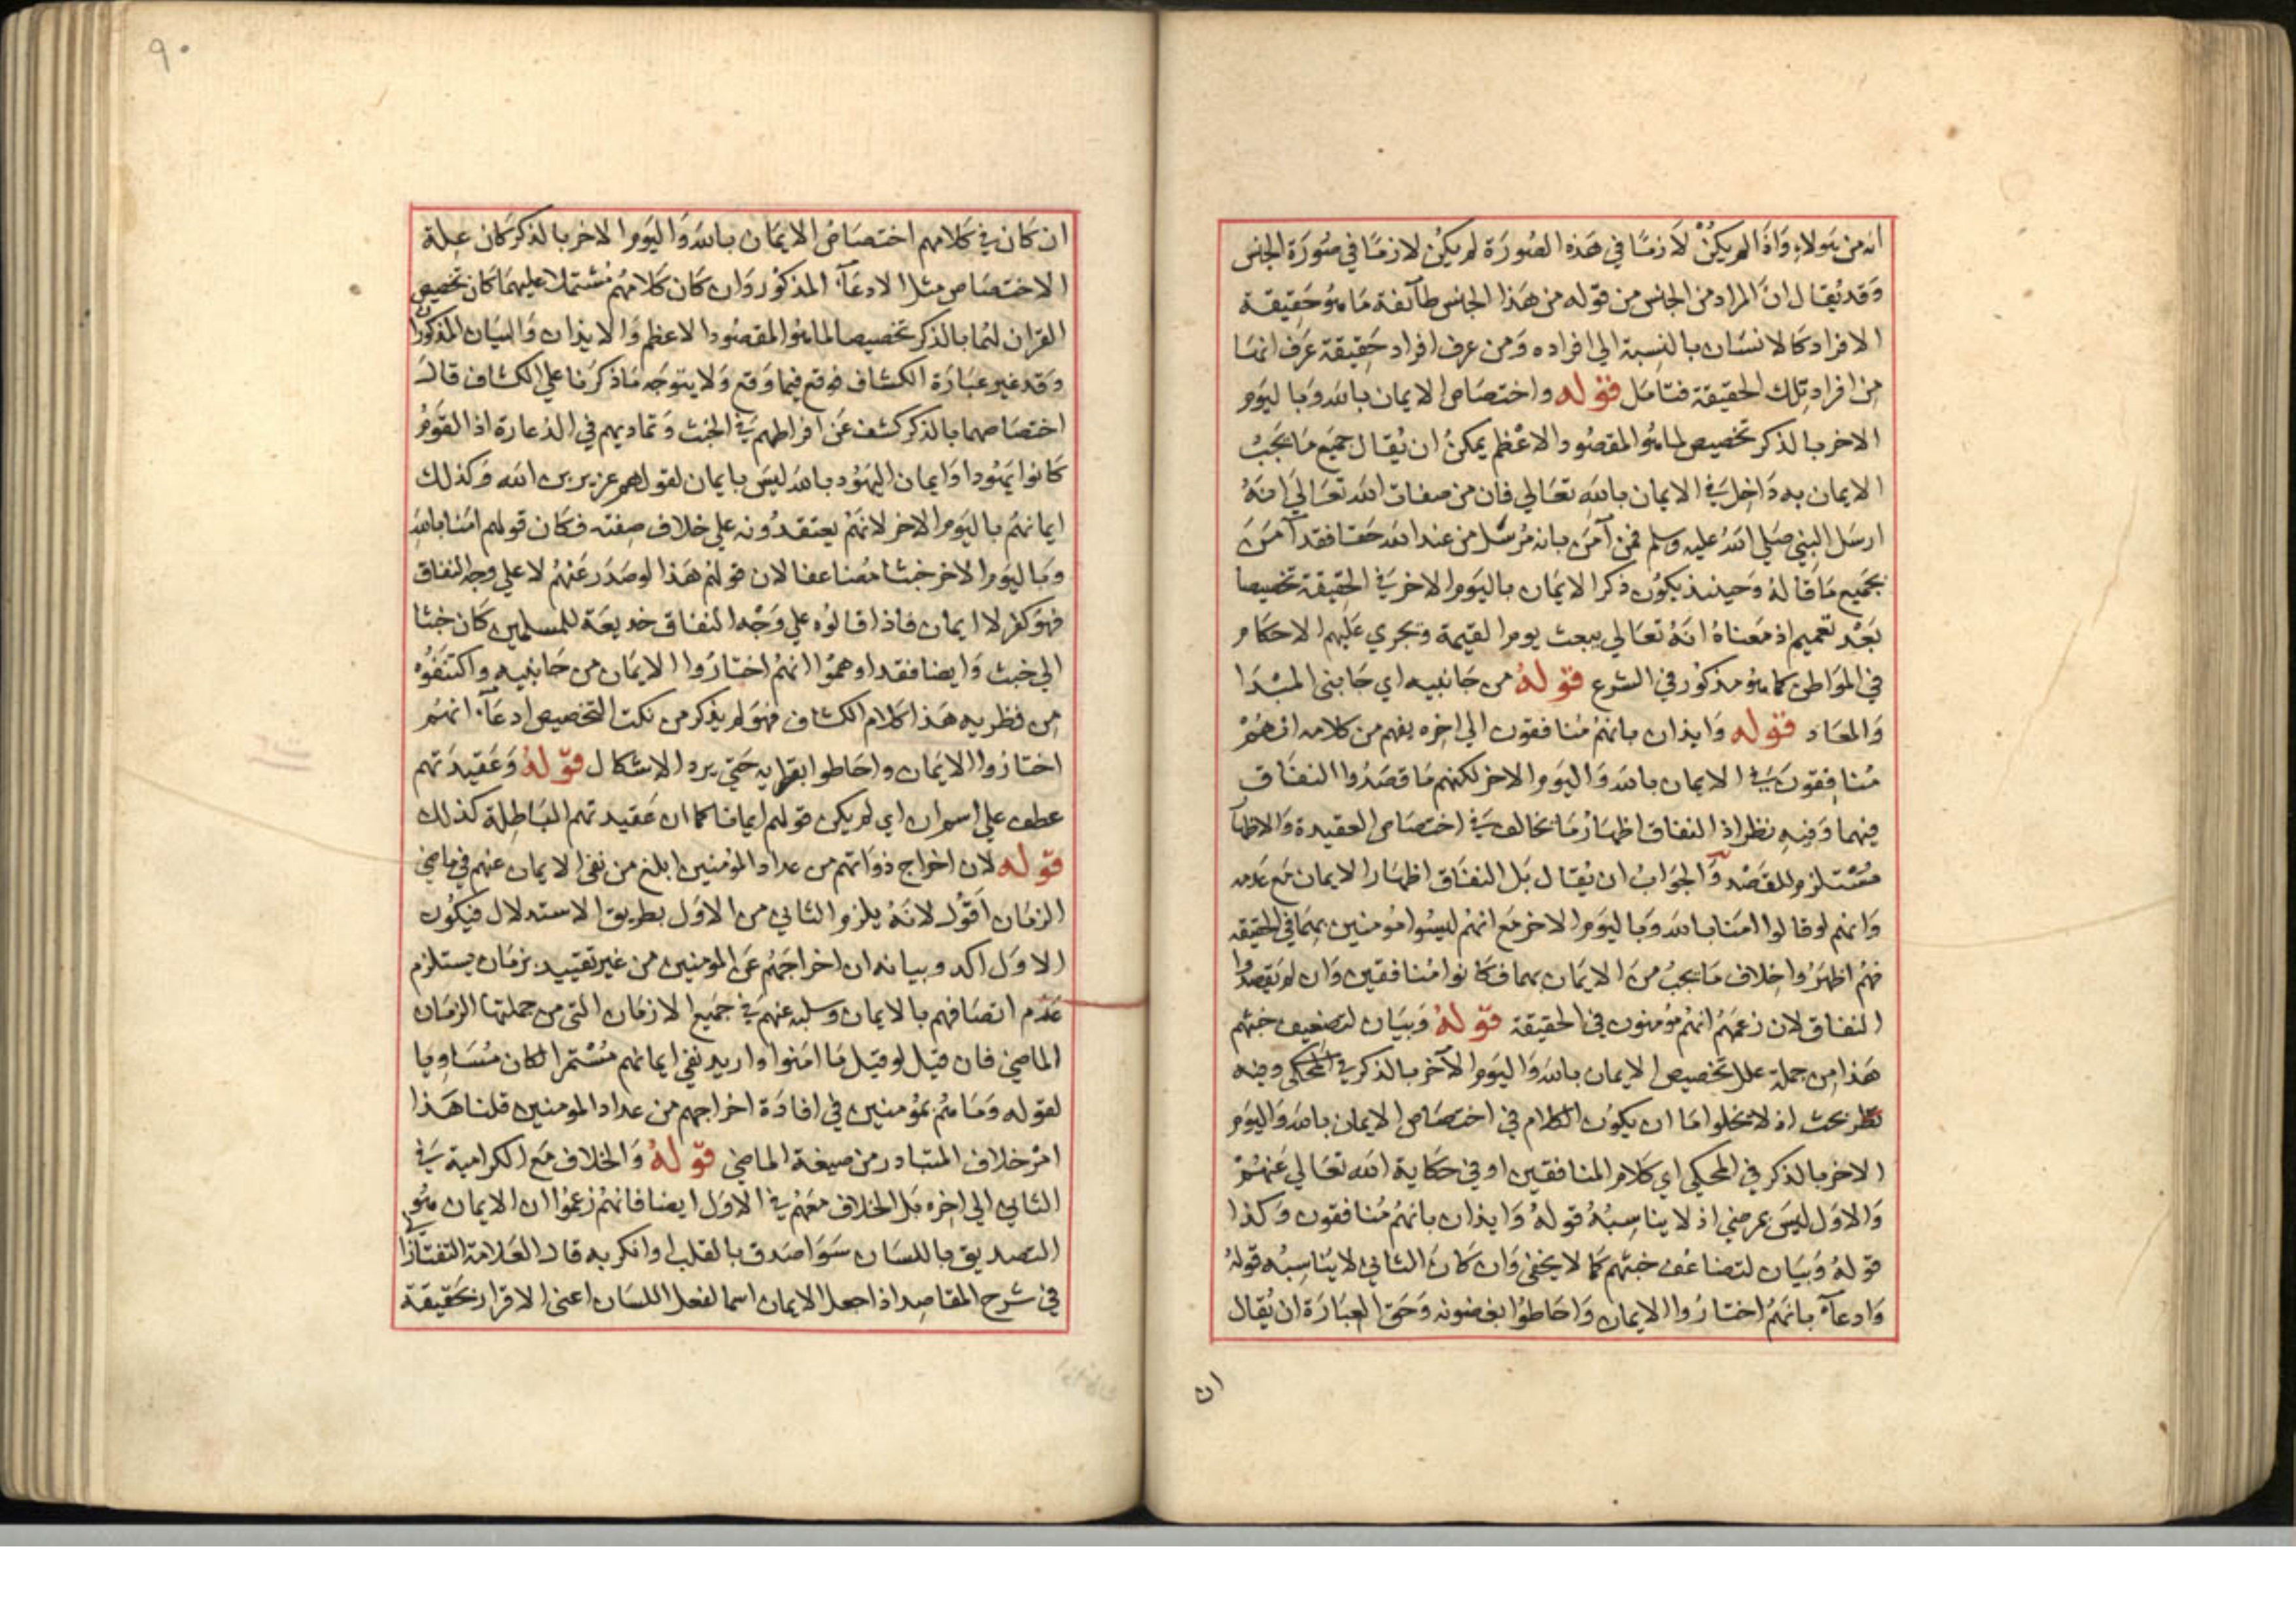 انه من هؤلاء وَاذَا لم يكنْ لَازمًا في هَذه الصُورَة لم يكنْ لازمًا في صُورَة الجنس
وَقد يُقال انَّ المرَاد من الجنس من قوله من هَذا الجنس طآئفة مَا هوُ حَقِيقة
الافراد كالانسَان بالنسبة الي افراده وَمن عرف افراد حَقِيقة عَرف انها
مِن افراد تلك الحقيقة فتامَل قوله واختصَاص الايمان بالله وَبا ليَوم
الاخر بالذكر تخصيص لما هوُ المقصُود الاعْظم يمكنُ ان يُقال جميَع مَا يَجبُ
الايمان به دَاخِل في الايمان بالله تعَالي فان من صفات الله تعَالي انهُ
ارسَل النبي صَلي اللهُ عليه وسلم فمن آمَن بانه مُرسَل من عند الله حَقا فقد آمَن
بجَميع مَا قالهُ وَحينئذ يكوُن ذكر الايمَان باليَوم الاخر في الحَقيقة تخصيصا
بَعْد تعميم اذ مَعناهُ انهُ تعَالي يبعث يوم القيمة وَيجري عَليهم الاحكام
في الموَاطن كما هوُ مذكوُر في الشرع قوله من جَانبيه اي جَانبى المبْدَا
وَالمعَاد قوله وَايذان بانهمُ مُنافقون الي اخِره يفهم من كلامه انهمُ
مُنافِقون في الايمان بالله وَاليَوم الاخر لكنهم مَا قصَدُوا النفاق
فيهما وَفيه نظر اذ النفاق اظهَارُ مَا يخالف في اختصَاص العقيدة وَالاظهآ
مُسْتلزم للقصْد وَالجوَابُ ان يُقال بَل النفاق اظهَار الايمان مَع عَدمه
وَانهم لو قالوا امَنا بالله وَبا ليَوم الاخر مَع انهمُ ليسُوا مؤمنين بهمَا في الحقيقه
فهُم اظهَرُوا خِلاف مَا يجبُ منَ الايمَان بهما فكانوا مُنافقين وَان لم يَقصدُوا
النفاق لان زعمَهمُ انهمُ مؤمنون في الحقيقة قوله وَبيَان لتضعيف خبثهم
هَذا مِن جملة علل تخصيص الايمان بالله وَاليَوم الآخر بالذكر في المحكى وفيه
نظر بحث اذ لا يخلوا امَا ان يكوُن الكلام في اختصَاص الايمان بالله وَاليوَم
الاخر بالذكر في المحكي اي كلام المنافقين او في حكاية الله تعَالي عَنهُمْ
وَالاوَل ليسَ بمرضي اذ لا يناسِبُهُ قولهُ وَايذان بانهمُ مُنافقون وَكذا
قولهُ وَبيَان لتضاعُف خبثهم كَما لا يخفى وَان كَان الثاني لا ينَاسِبُه قولهُ
وَادعآء بانهَمُ اختارُوا الايمان وَاحَاطوُا بغضونه وَحَق العبَارَة ان يُقال
ان
٩٠
ان كَان في كَلامهم اختصَاصُ الايمَان بالله وَاليَوم الاخر بالذكر كان عِلة
الاختصَاص مثل الادعَآء المذكوُر وَان كَان كَلامهُم مُشتملا عليهمَا كان تخصيص
القران لهُما بالذكر تخصيصا لما هوُ المقصُود الاعظم وَالايذان وَالبيان المذكوُرا
وَقد غير عبَارَة الكشاف فوقع فيما وَقع وَلا يتوَجه مَا ذكرنا علي الكشاف قالَ
اختصَاصهما بالذكر كشف عَن افراطهم في الخبث وَتماديهم في الدعارة اذ القوَمُ
كَانوا يَهُودا وَايمان اليهُود بالله ليسَ بايمان لقولهم عزير بن الله وَكذلك
ايمانهمُ باليَوم الاخر لانهَمُ يعتقدُونه علي خلاف صِفته فكان قولهم امَنا بالله
وَبا ليَوم الاخر خبثا مُضاعفا لان قولهُم هَذا لو صَدَر عَنهُم لا علي وجه النفاق
فهُوَ كفر لا ايمان فاذا قالوُه علي وَجْه النفاق خديعَة للمسلمين كَان خبثا
الي خبث وَايضا فقد اوهموُا انهمُ اختارُوا الايمَان من جَانبيه واكتنَفوُه
مِن قطريه هَذا كلام الكشاف فهُوَ لم يذكر من نكت التخصيص ادعَآء انهُم
اختارُوا الايمَان واحَاطوا بقرايه حَتي يرد الاشكال قوله وَعَقيدَتهم
عطف علي اسم ان اي لم يكن قولهم ايمانا كما ان عَقيدتهم البَاطِلة كذلك
قوله لان اخراج ذوَاتهم من عداد المؤمنين ابلغ من نفي الايمان عنهم في ماضي
الزمَان اقوُل لانهُ يلزم الثاني من الاوَل بطريق الاستدلال فيكوُن
الاوَل اكد وبيانه ان اخراجَهمُ عَن المومنين من غير تقييد بزمَان يستلزم
عَدَم اتصَافهم بالايمان وسلبه عنهم في جميَع الازمَان التى من جملتها الزمَان
الماضي فان قيل لو قيل مَا امَنوا واريد نفي ايمانهم مُستمرا لكان مُسَاوِيا
لقوله وَمَا هُم بمؤمنين في افادَة اخراجهم من عداد المومنين قلنا هَذا
امْر خلاف المتبادر من صيغة الماضي قوله وَالخلاف مَع الكرامية في
الثاني الي اخِره بَل الخلاف معَهمُ في الاوَل ايضا فانهمُ زعمُوا ان الايمان هوُ
التصديق باللسَان سَوَا صَدق بالقلب او انكر به قال العَلامَة التفتازا
في شرح المقاصِد اذا جعل الايمان اسما لفعل اللسَان اعني الاقرار بحَقيقَة